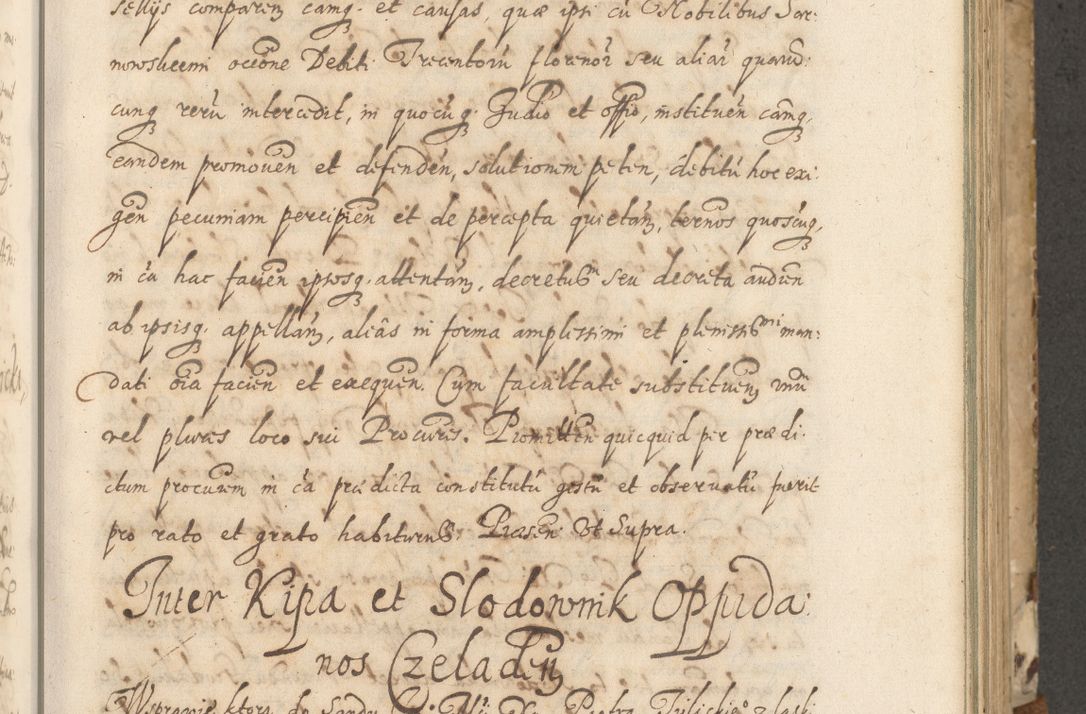 sellijs comparem camq. et causas, quæ ipsi cũ Nobilibus Sar:
nowskiemi occõne Debiti Trecentorũ florenoȓ seu aliaȓ quarũ:
cunq rerũ intercedit, in quocũq. Judio et offio, instituen̄ camq.
eandem promoven̄ et defenden̄, solutionem peten, debitũ hoc exi:
gen̄ pecuniam percipien̄ et de percepta quietan̄, ternos quoscũq,
in ca hac facien̄ ipsosq. attentan̄, decretum seu decreta audien
ab ipsisq. appellan̄, aliâs in forma amplissimi et plenissimi man:
dati oĩa facien̄ et exequen̄. Cum facultate substituen̄ unũ
vel plures loco sui Procuris. Promitten quicquid per prædi:
ctum procurem in ca prædicta constitutũ gestũ et observatũ fuerit
pro rato et grato habiturus. Præsen: Vt Supra.
Inter Kipa et Slodownik Oppida:
nos Czeladen̄
W sprawie ktora do Sandu Piotra Trilickiego z laski